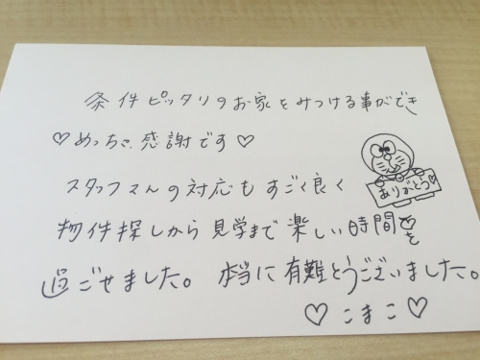 条件ピッタリのお家をみつける事ができ
♡めっちゃ感謝です♡
スタッフさんの対応もすごく良く
ありがとう♡
物件探しから見学まで楽しい時間を
過ごせました。本当に有難とうございました。
♡こまこ♡